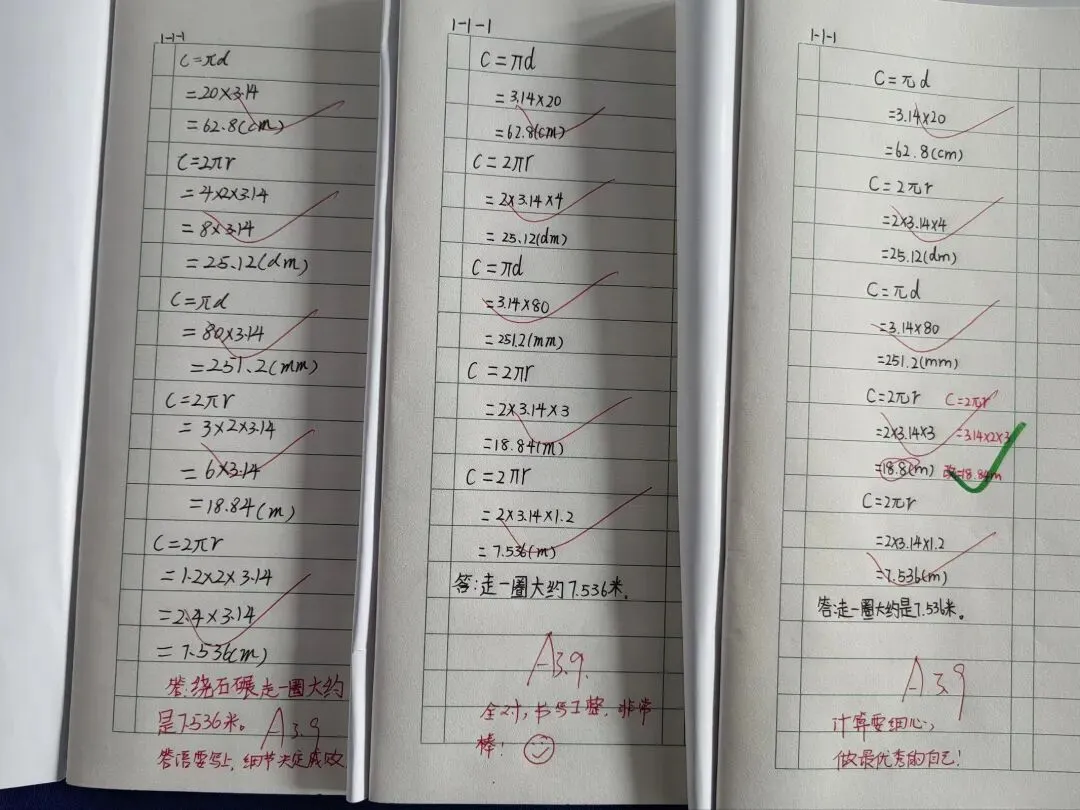 1-1-1
C=πd
=20×3.14
=62.8(cm)
C=2πr
=4×2×3.14
=8×3.14
=25.12(dm)
C=πd
=80×3.14
=251.2(mm)
C=2πr
=3×2×3.14
=6×3.14
=18.84(m)
C=2πr
=1.2×2×3.14
=2.4×3.14
=7.536(m)
答:绕石碾走一圈大约
是7.536米。
A 3.9
答语要写上,细节决定成败
1-1-1
C=πd
=3.14×20
=62.8(cm)
C=2πr
=2×3.14×4
=25.12(dm)
C=πd
=3.14×80
=251.2(mm)
C=2πr
=2×3.14×3
=18.84(m)
C=2πr
=2×3.14×1.2
=7.536(m)
答:走一圈大约7.536米。
A 3.9.
全对,书写工整,非常
棒!
1-1-1
C=πd
=3.14×20
=62.8(cm)
C=2πr
=2×3.14×4
=25.12(dm)
C=πd
=3.14×80
=251.2(mm)
C=2πr C=2πr
=2×3.14×3 =3.14×2×3
=18.8(m) 改=18.84m
C=2πr
=2×3.14×1.2
=7.536(m)
答:走一圈大约是7.536米。
A 3.9
计算要细心,
做最优秀的自己!